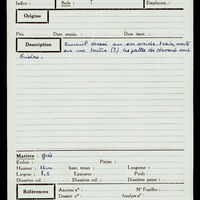 Indice : Style : Emplacem. :
Origine
Prix Date acquis. : Date inv. :
Description dressé sur son arrière-train, monté
sur une tortue (?) les pattes de devant sur
Matière : grès
Enduit : Patine :
Hauteur : Haut. tenon : Longueur :
Largeur : 8,5 Epaisseur : Poids :
Diamètre col. : Diamètre col. : Diamètre panse :
Références Anciens n° : N° Fouilles :
Dossier n° : Analyse n° :